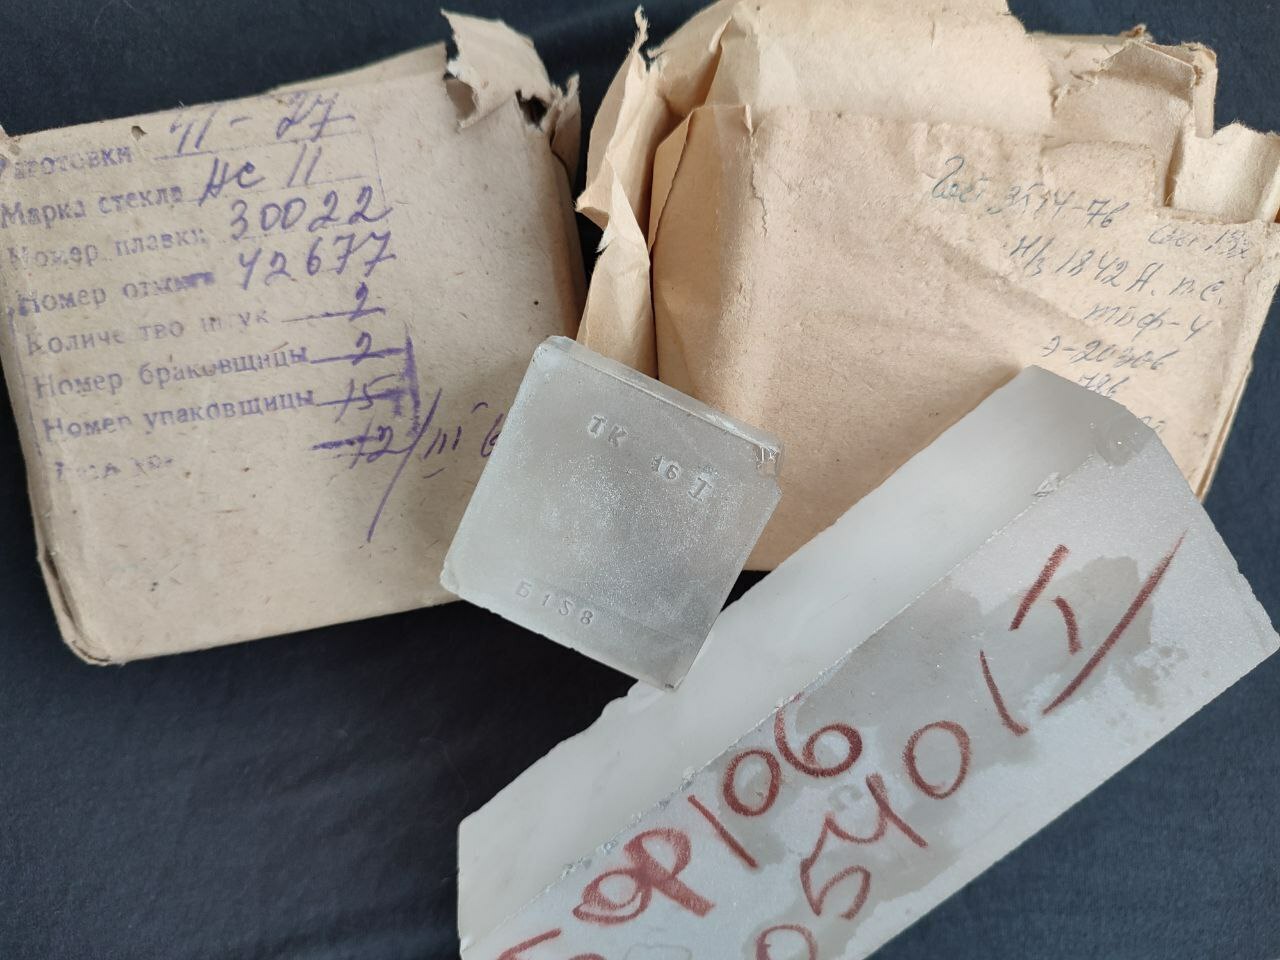 заготовки 41-27
Марка стекла НС 11
Номер плавки 30022
Номер отжига 42677
Количество штук 2
Номер браковщицы 2
Номер упаковщицы 15
12/III
Гост 3514-76
Н/з 1842 А. п.с.
тбф-4
Э-20306
786
ТК 16 I
Б158
БФР106
05401 I